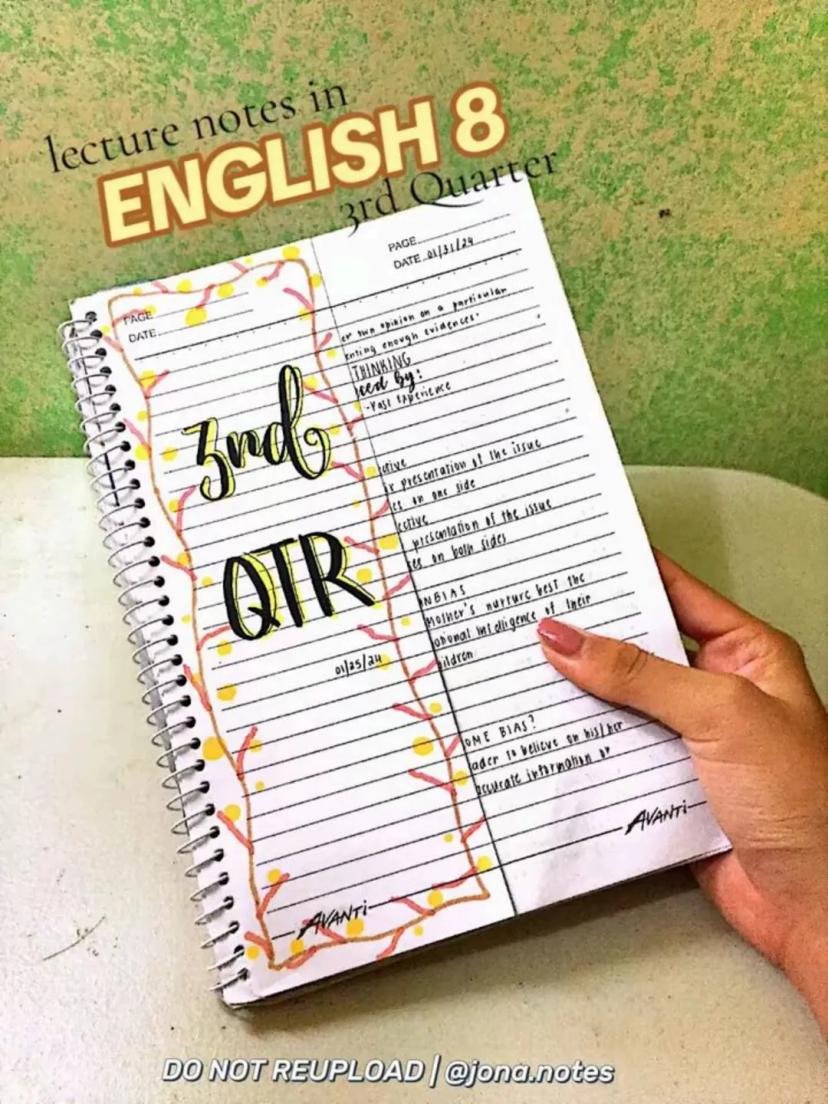 lecture notes in
ENGLISH 8
3rd Quarter
PAGE
DATE
3rd
QTR
01/25/24
AVANTi
PAGE
DATE 01/31/24
er own opinion on a particular
enting enough evidences.
THINKING
ced by:
-Past Experience
ctive
r presentation of the issue
es on one side
ective
presentation of the issue
es on both sides
NBIAS
Mother's nurture best the
otional intelligence of their
ildren
OME BIAS?
ader to believe on his/her
accurate information or
AVANTi
DO NOT REUPLOAD | @jona.notes